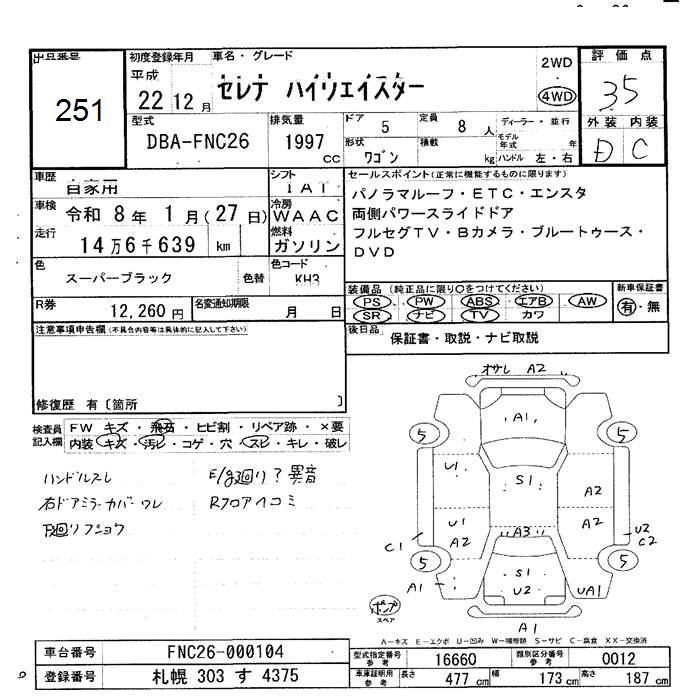 出品番号
251
初度登録年月
平成
22 12 月
車名・グレード
セレナ ハイウェイスター
2WD
4WD
評価点
3.5
外装 内装
D C
型式
DBA-FNC26
排気量
1997
cc
ドア 5
定員 8 人
ディーラー・並行
形状 ワゴン
積載 kg
モデル年式 年
ハンドル 左・右
車歴
自家用
シフト
IAT
車検
令和 8年 1月(27日)
冷房
WAAC
走行
14万6千639 km
燃料
ガソリン
色
スーパーブラック
色替
色コード
KH3
R券
12,260円
名変通知期限
月 日
セールスポイント(正常に機能するものに限ります)
パノラマルーフ・ETC・エンスタ
両側パワースライドドア
フルセグTV・Bカメラ・ブルートゥース・
DVD
装備品 (純正品に限り〇をつけてください)
PS PW ABS エアB AW
SR ナビ TV カワ
新車保証書
有・無
後日品
保証書・取説・ナビ取説
注意事項申告欄(不具合内容等は具体的に記入して下さい)
修復歴 有〔箇所 〕
検査員記入欄
FW キズ・飛石・ヒビ割・リペア跡・×要
内装 キズ・汚レ・コゲ・穴・スレ・キレ・破レ
ハンドルスレ
右ドアミラーカバーワレ
下廻りフショウ
E/g廻り?異音
Rフロアヘコミ
オサレ A2
A1
5
5
U1
S1
A2
U1
A2
A3
A2
C1
U2
C2
5
5
A1
S1
U2
UA1
ボンプ
スペア
A1
A-キズ E-エクボ U-凹み W-補修跡 S-サビ C-腐食 XX-交換済
車台番号
FNC26-000104
登録番号
札幌 303 す 4375
型式指定番号 参考
16660
類別区分番号 参考
0012
車庫証明用 参考
長さ 477 cm
幅 173 cm
高さ 187 cm